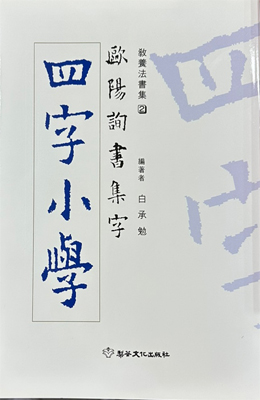 敎養法書集 2
歐陽詢書集字
四字小學
編著者 白承勉
梨花文化出版社
四字